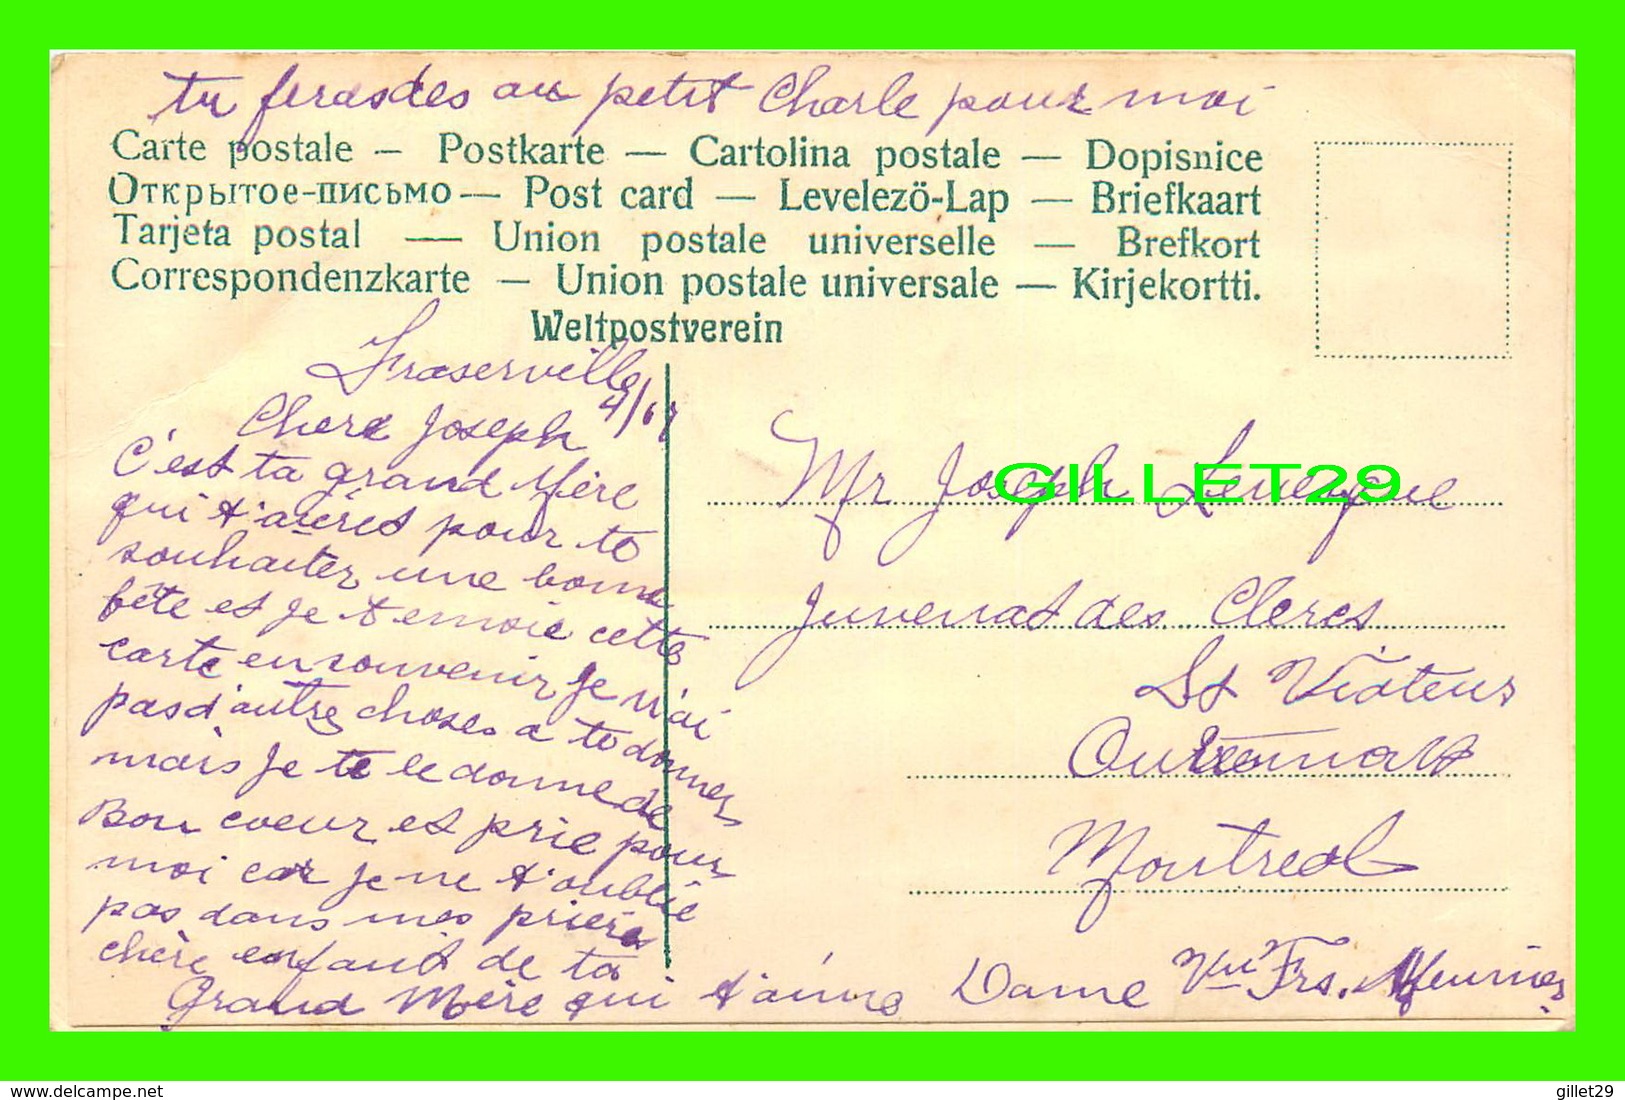 tu ferasdes au petit Charle pour moi
Carte postale — Postkarte — Cartolina postale — Dopisnice
Открытое-письмо — Post card — Levelező-Lap — Briefkaart
Tarjeta postal — Union postale universelle — Brefkort
Correspondenzkarte — Union postale universale — Kirjekortti.
Weltpostverein
Fraserville
Chere Joseph
C'est ta grand Mère
qui t'aeris pour te
souhaiter une bonne
fête et je t envoie cette
carte en souvenir je n'ai
pas d'autre choses a te donner
mais je te le donne de
Bon coeur et prie pour
moi car je ne t'oublie
pas dans mes prière
chère enfant de ta
Grand Mère qui t'aime Dame Vve Frs. Meunier
Mr Joseph Levesque
GILLET29
Juvenat des Clercs
St Viateur
Outremont
Montreal
www.delcampe.net
gillet29